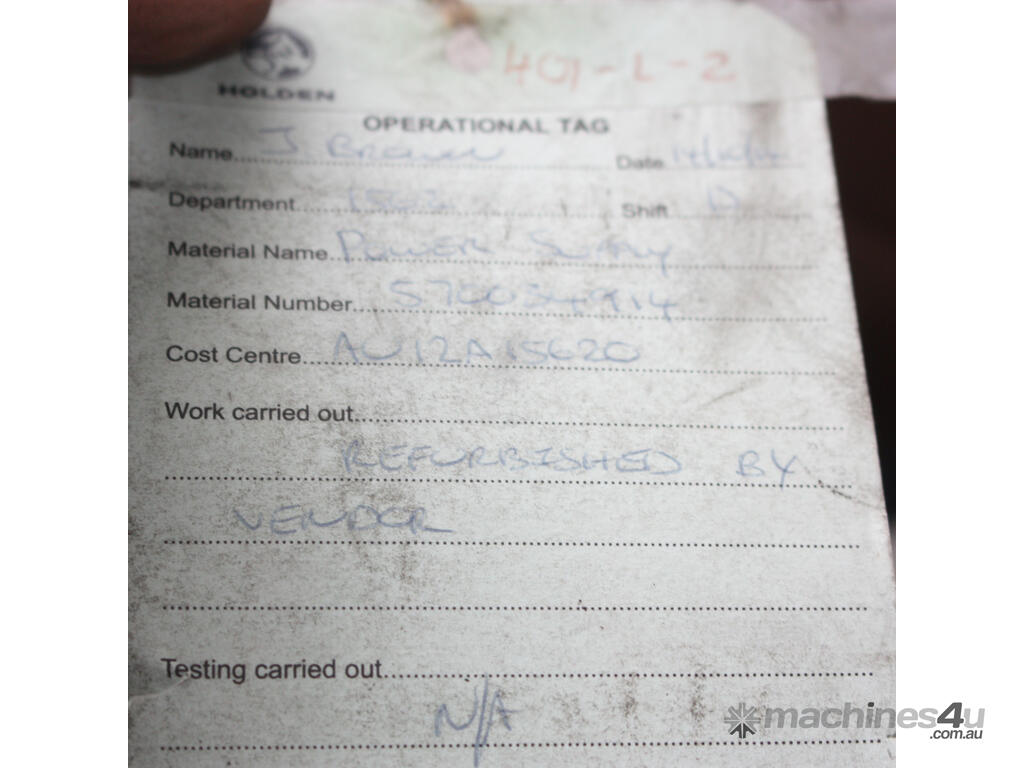 401-L-2
HOLDEN
OPERATIONAL TAG
Name.... J Brown Date
Department.... Shift D
Material Name.... POWER SUPPLY
Material Number....
Cost Centre.... AU12A15620
Work carried out....
REFURBISHED BY
VENDOR
Testing carried out....
N/A
machines4u
.com.au